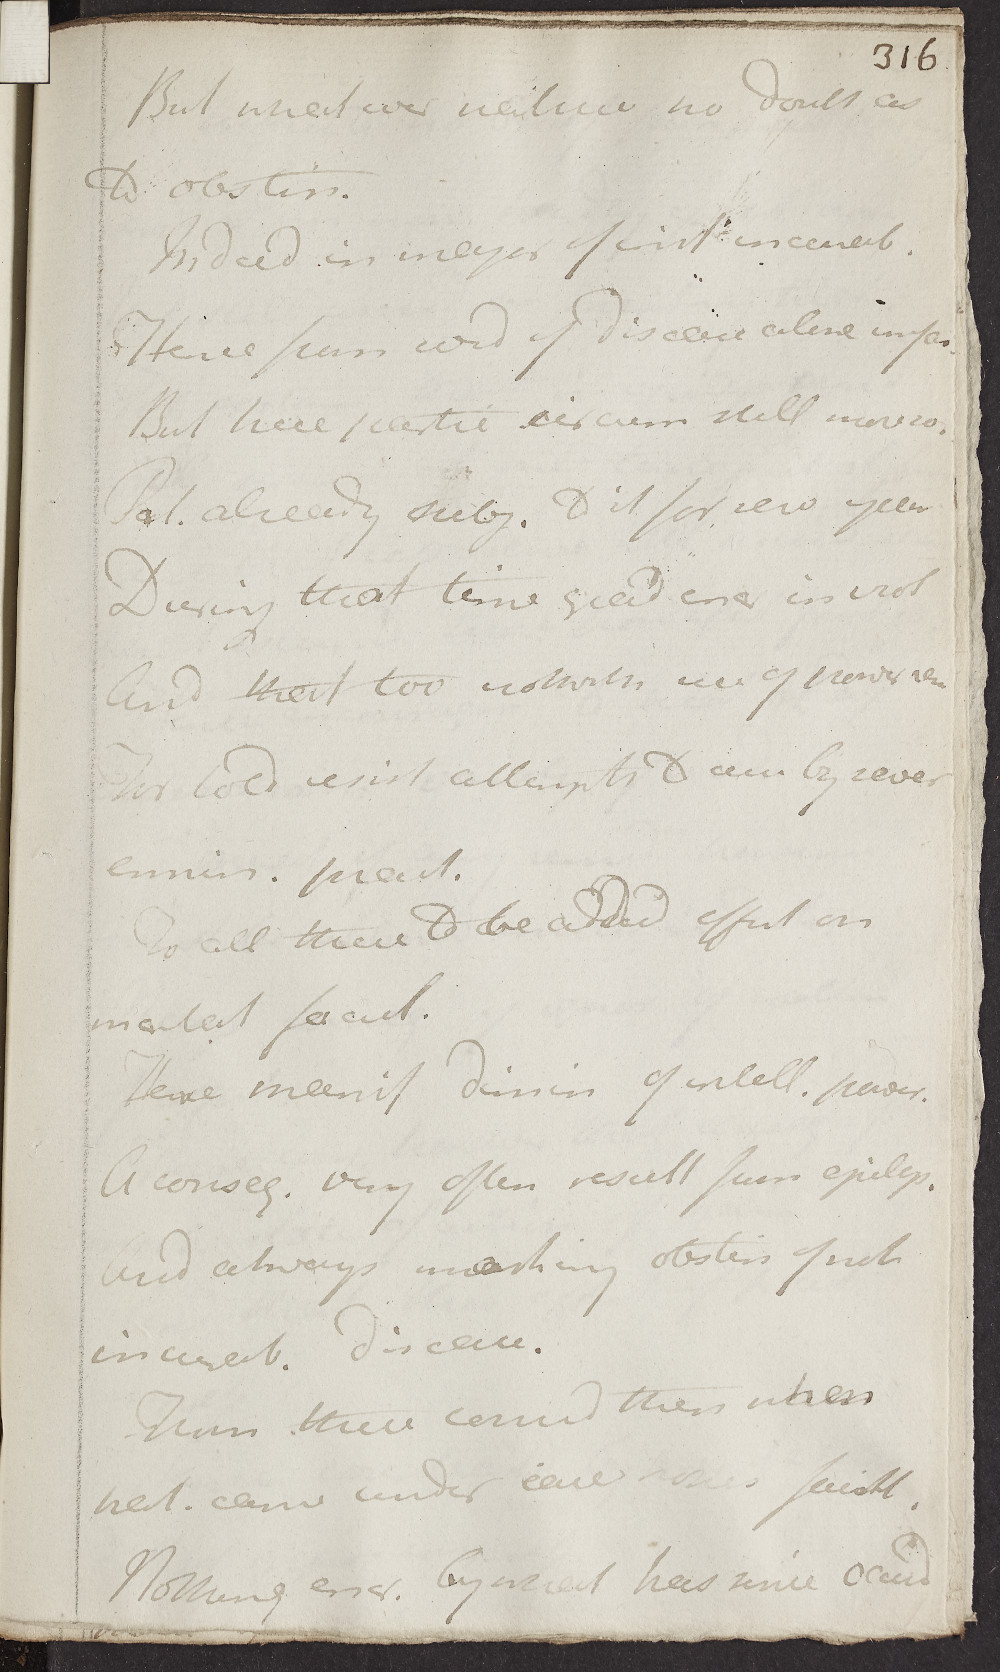 316
But whatever nature no doubt as
to obstin.
Indeed in major of inst incurab.
Here from cord of disease alone unfav.
But here partic circum still more so.
Pat. already subj. to it for sev years
During that time grad incr in viol
And that too notwith use of power rem
For told resist attempts to cure by sever
emin. pract.
To all these to be added effect on
mental facult.
Here manif dimin of intell. power.
A conseq. very often result from epilep.
And always marking obstin if not
incurab. disease.
From these considerations when
Pat. came under care
Nothing by what has since occurd